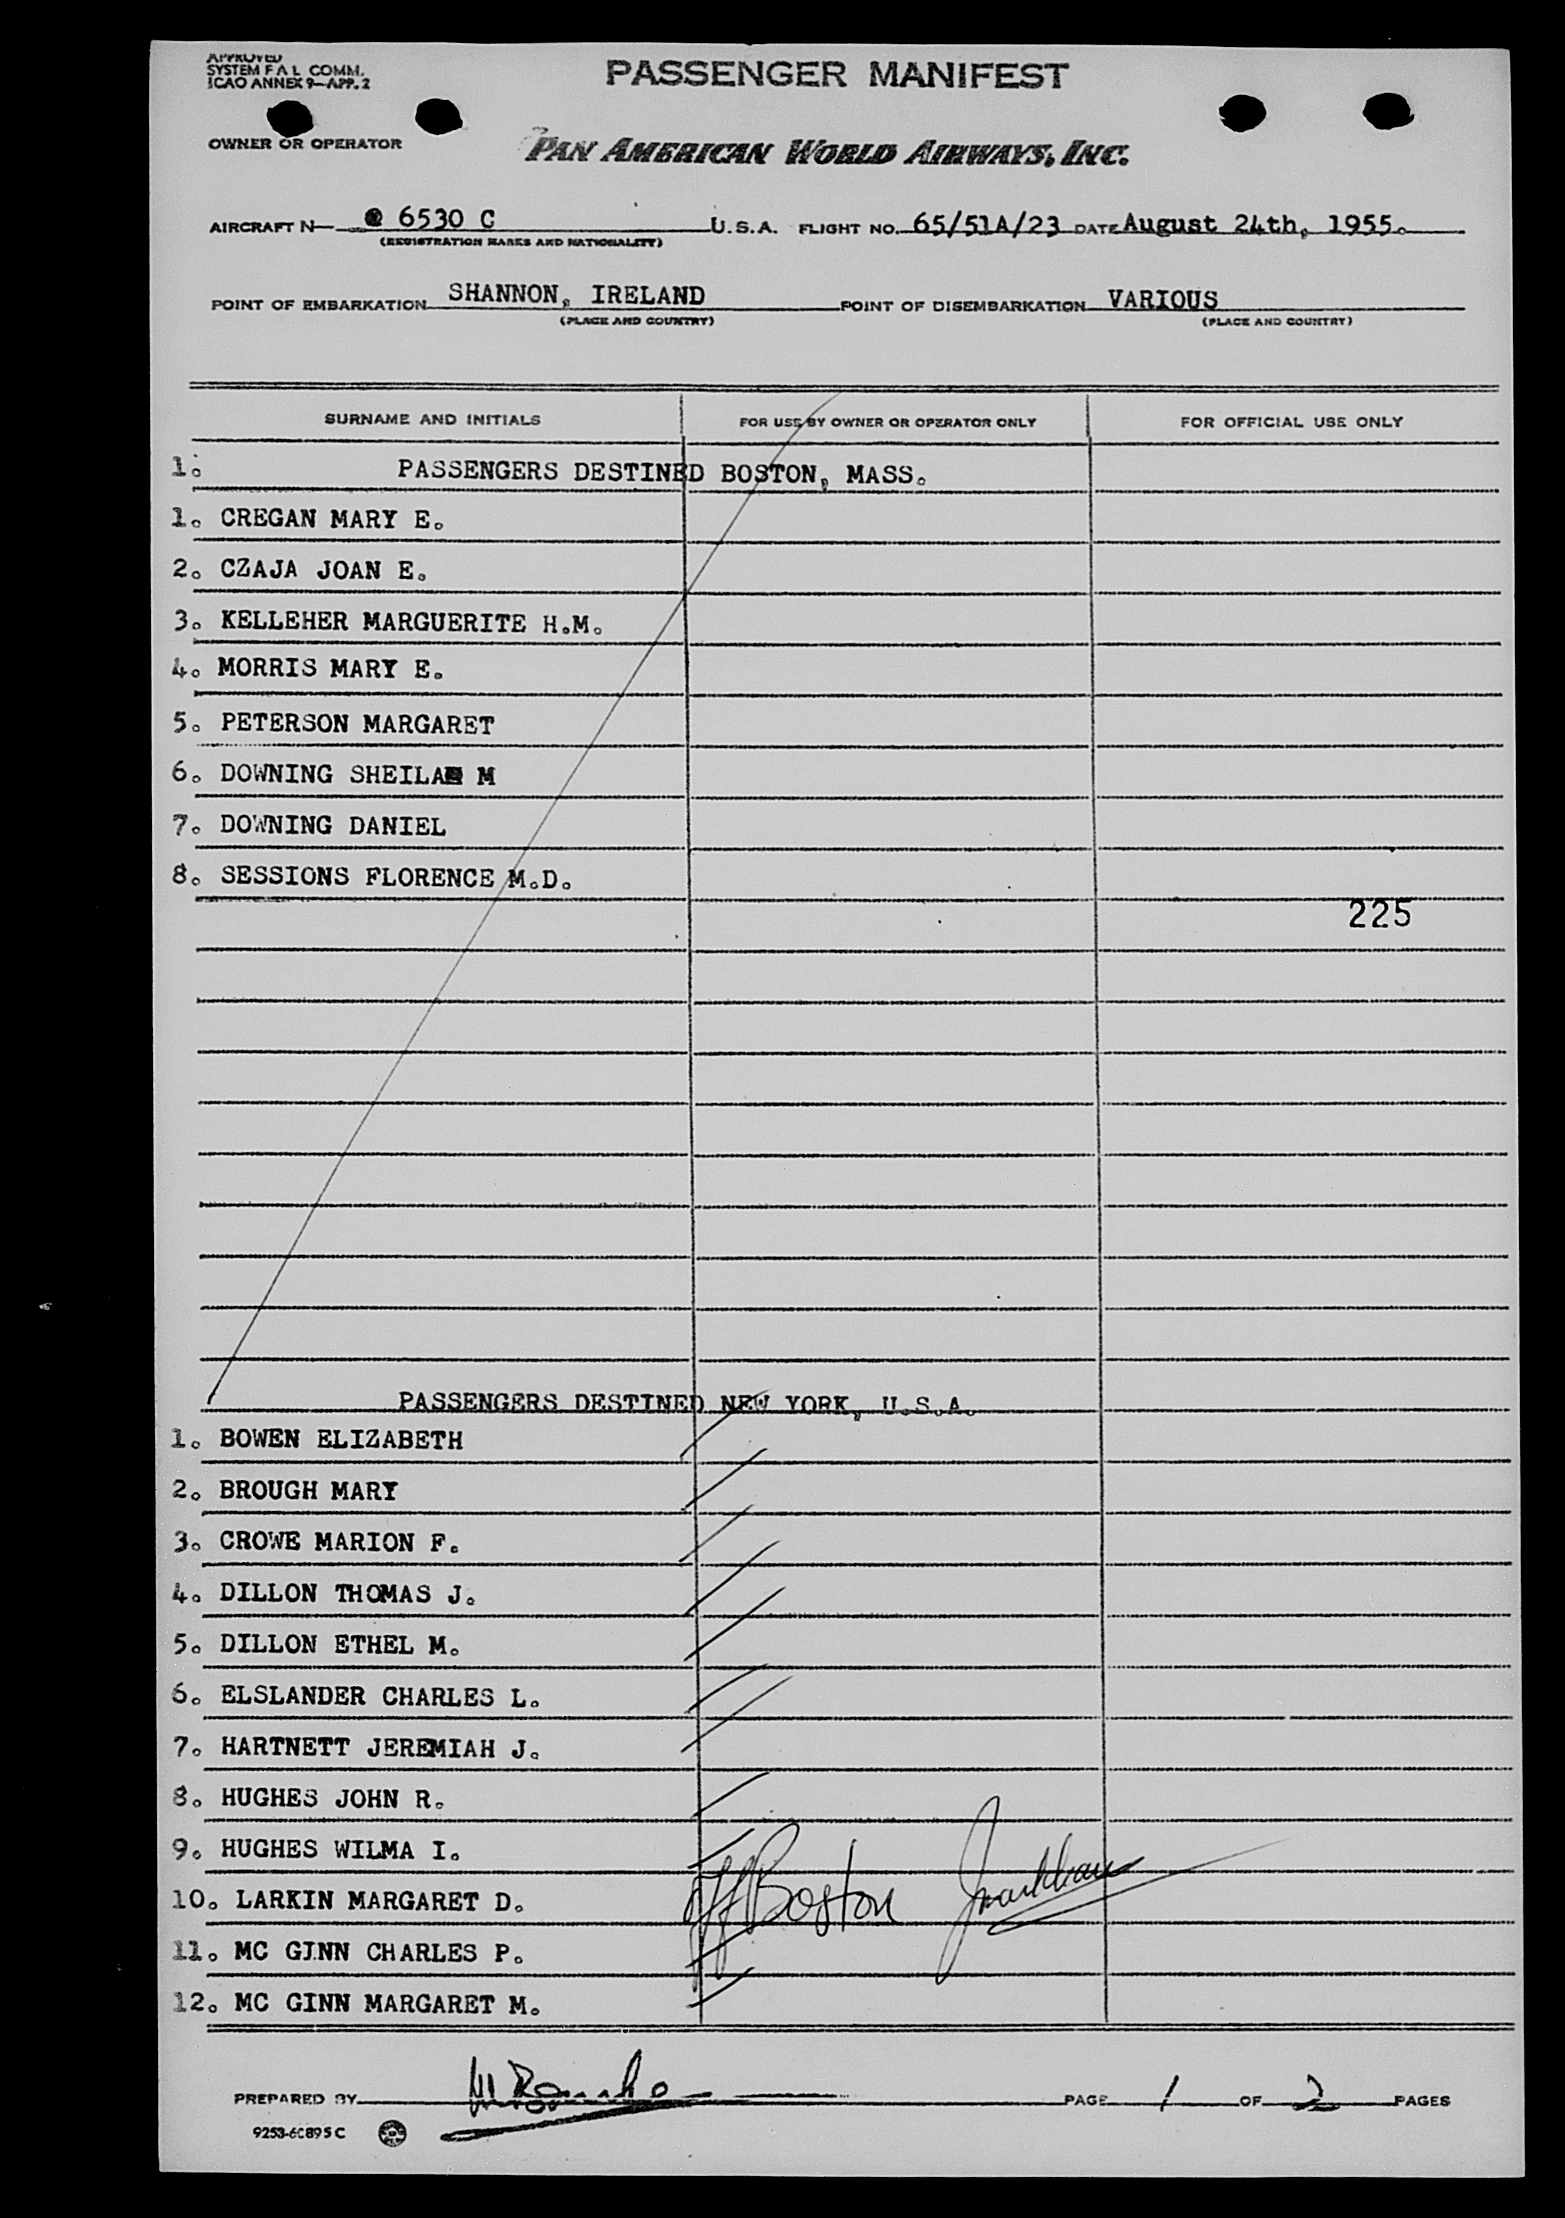 APPROVED
SYSTEM F A L COMM.
ICAO ANNEX 9—APP. 2
PASSENGER MANIFEST
OWNER OR OPERATOR
PAN AMERICAN WORLD AIRWAYS, INC.
AIRCRAFT N— 6530 C U.S.A. FLIGHT NO. 65/51A/23 DATE August 24th, 1955.
(REGISTRATION MARKS AND NATIONALITY)
POINT OF EMBARKATION SHANNON, IRELAND POINT OF DISEMBARKATION VARIOUS
(PLACE AND COUNTRY) (PLACE AND COUNTRY)
SURNAME AND INITIALS FOR USE BY OWNER OR OPERATOR ONLY FOR OFFICIAL USE ONLY
1. PASSENGERS DESTINED BOSTON, MASS.
1. CREGAN MARY E.
2. CZAJA JOAN E.
3. KELLEHER MARGUERITE H.M.
4. MORRIS MARY E.
5. PETERSON MARGARET
6. DOWNING SHEILA M
7. DOWNING DANIEL
8. SESSIONS FLORENCE M.D.
225
PASSENGERS DESTINED NEW YORK, U.S.A.
1. BOWEN ELIZABETH
2. BROUGH MARY
3. CROWE MARION F.
4. DILLON THOMAS J.
5. DILLON ETHEL M.
6. ELSLANDER CHARLES L.
7. HARTNETT JEREMIAH J.
8. HUGHES JOHN R.
9. HUGHES WILMA I.
10. LARKIN MARGARET D. off Boston
11. MC GINN CHARLES P.
12. MC GINN MARGARET M.
PREPARED BY PAGE 1 OF 2 PAGES
9253-6C895C